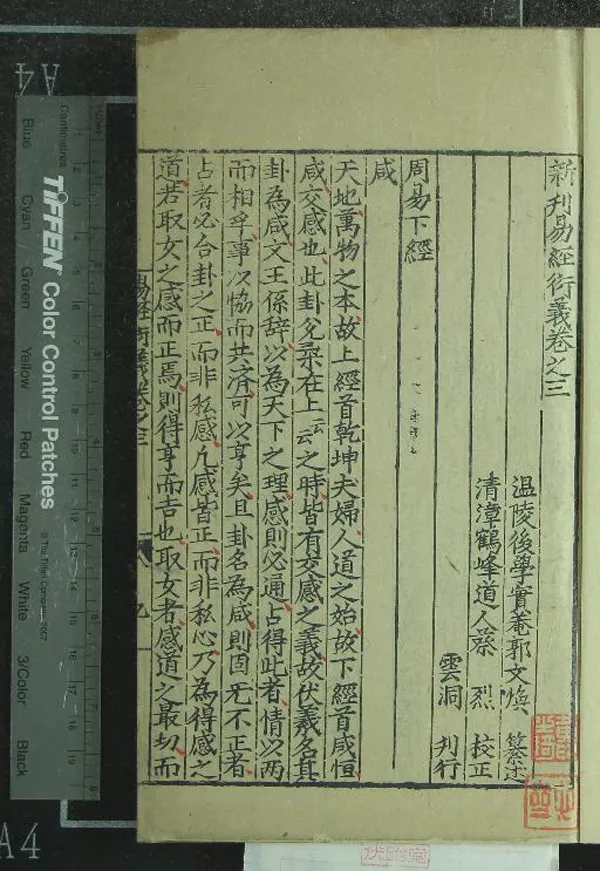 新刋易經衍義卷之三
温陵後學實菴郭文煥 纂述
清漳鶴峰道人蔡 烈 校正
雲洞 刋行
周易下經
咸
天地萬物之本故上經首乾坤夫婦人道之始故下經首咸恒
咸交感也此卦兊柔在上云云之時皆有交感之義故伏羲名其
卦為咸文王係辞以為天下之理感則必通占得此者情以两
而相孚事以恊而共济可以亨矣且卦名為咸則固无不正者
占者必合卦之正而非私感凢感皆正而非私心乃為得感之
道若取女之感而正焉則得亨而吉也取女者感道之最切而
易經衍義卷之三
A4
Centimetres
TIFFEN® Color Control Patches
© The Tiffen Company, 2007
Blue Cyan Green Yellow Red Magenta White 3/Color Black
A4